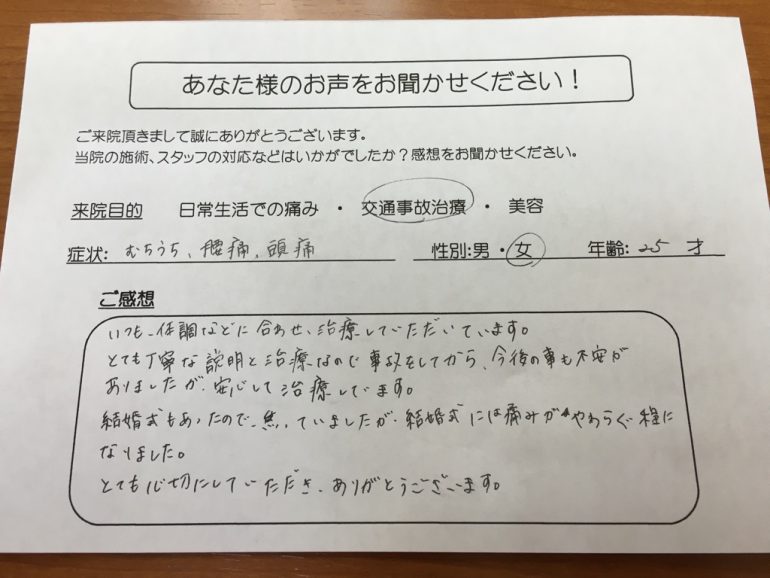 あなた様のお声をお聞かせください！
ご来院頂きまして誠にありがとうございます。
当院の施術、スタッフの対応などはいかがでしたか？感想をお聞かせください。
来院目的 日常生活での痛み ・ 交通事故治療 ・ 美容
症状: むちうち、腰痛、頭痛 性別:男・女 年齢: 25 才
ご感想
いつも、体調などに合わせ、治療していただいています。
とても丁寧な説明と治療なので事故をしてから、今後の事も不安が
ありましたが、安心して治療してます。
結婚式もあったので、焦っていましたが、結婚式には痛みがやわらぐ程に
なりました。
とても心切にしていただき、ありがとうございます。